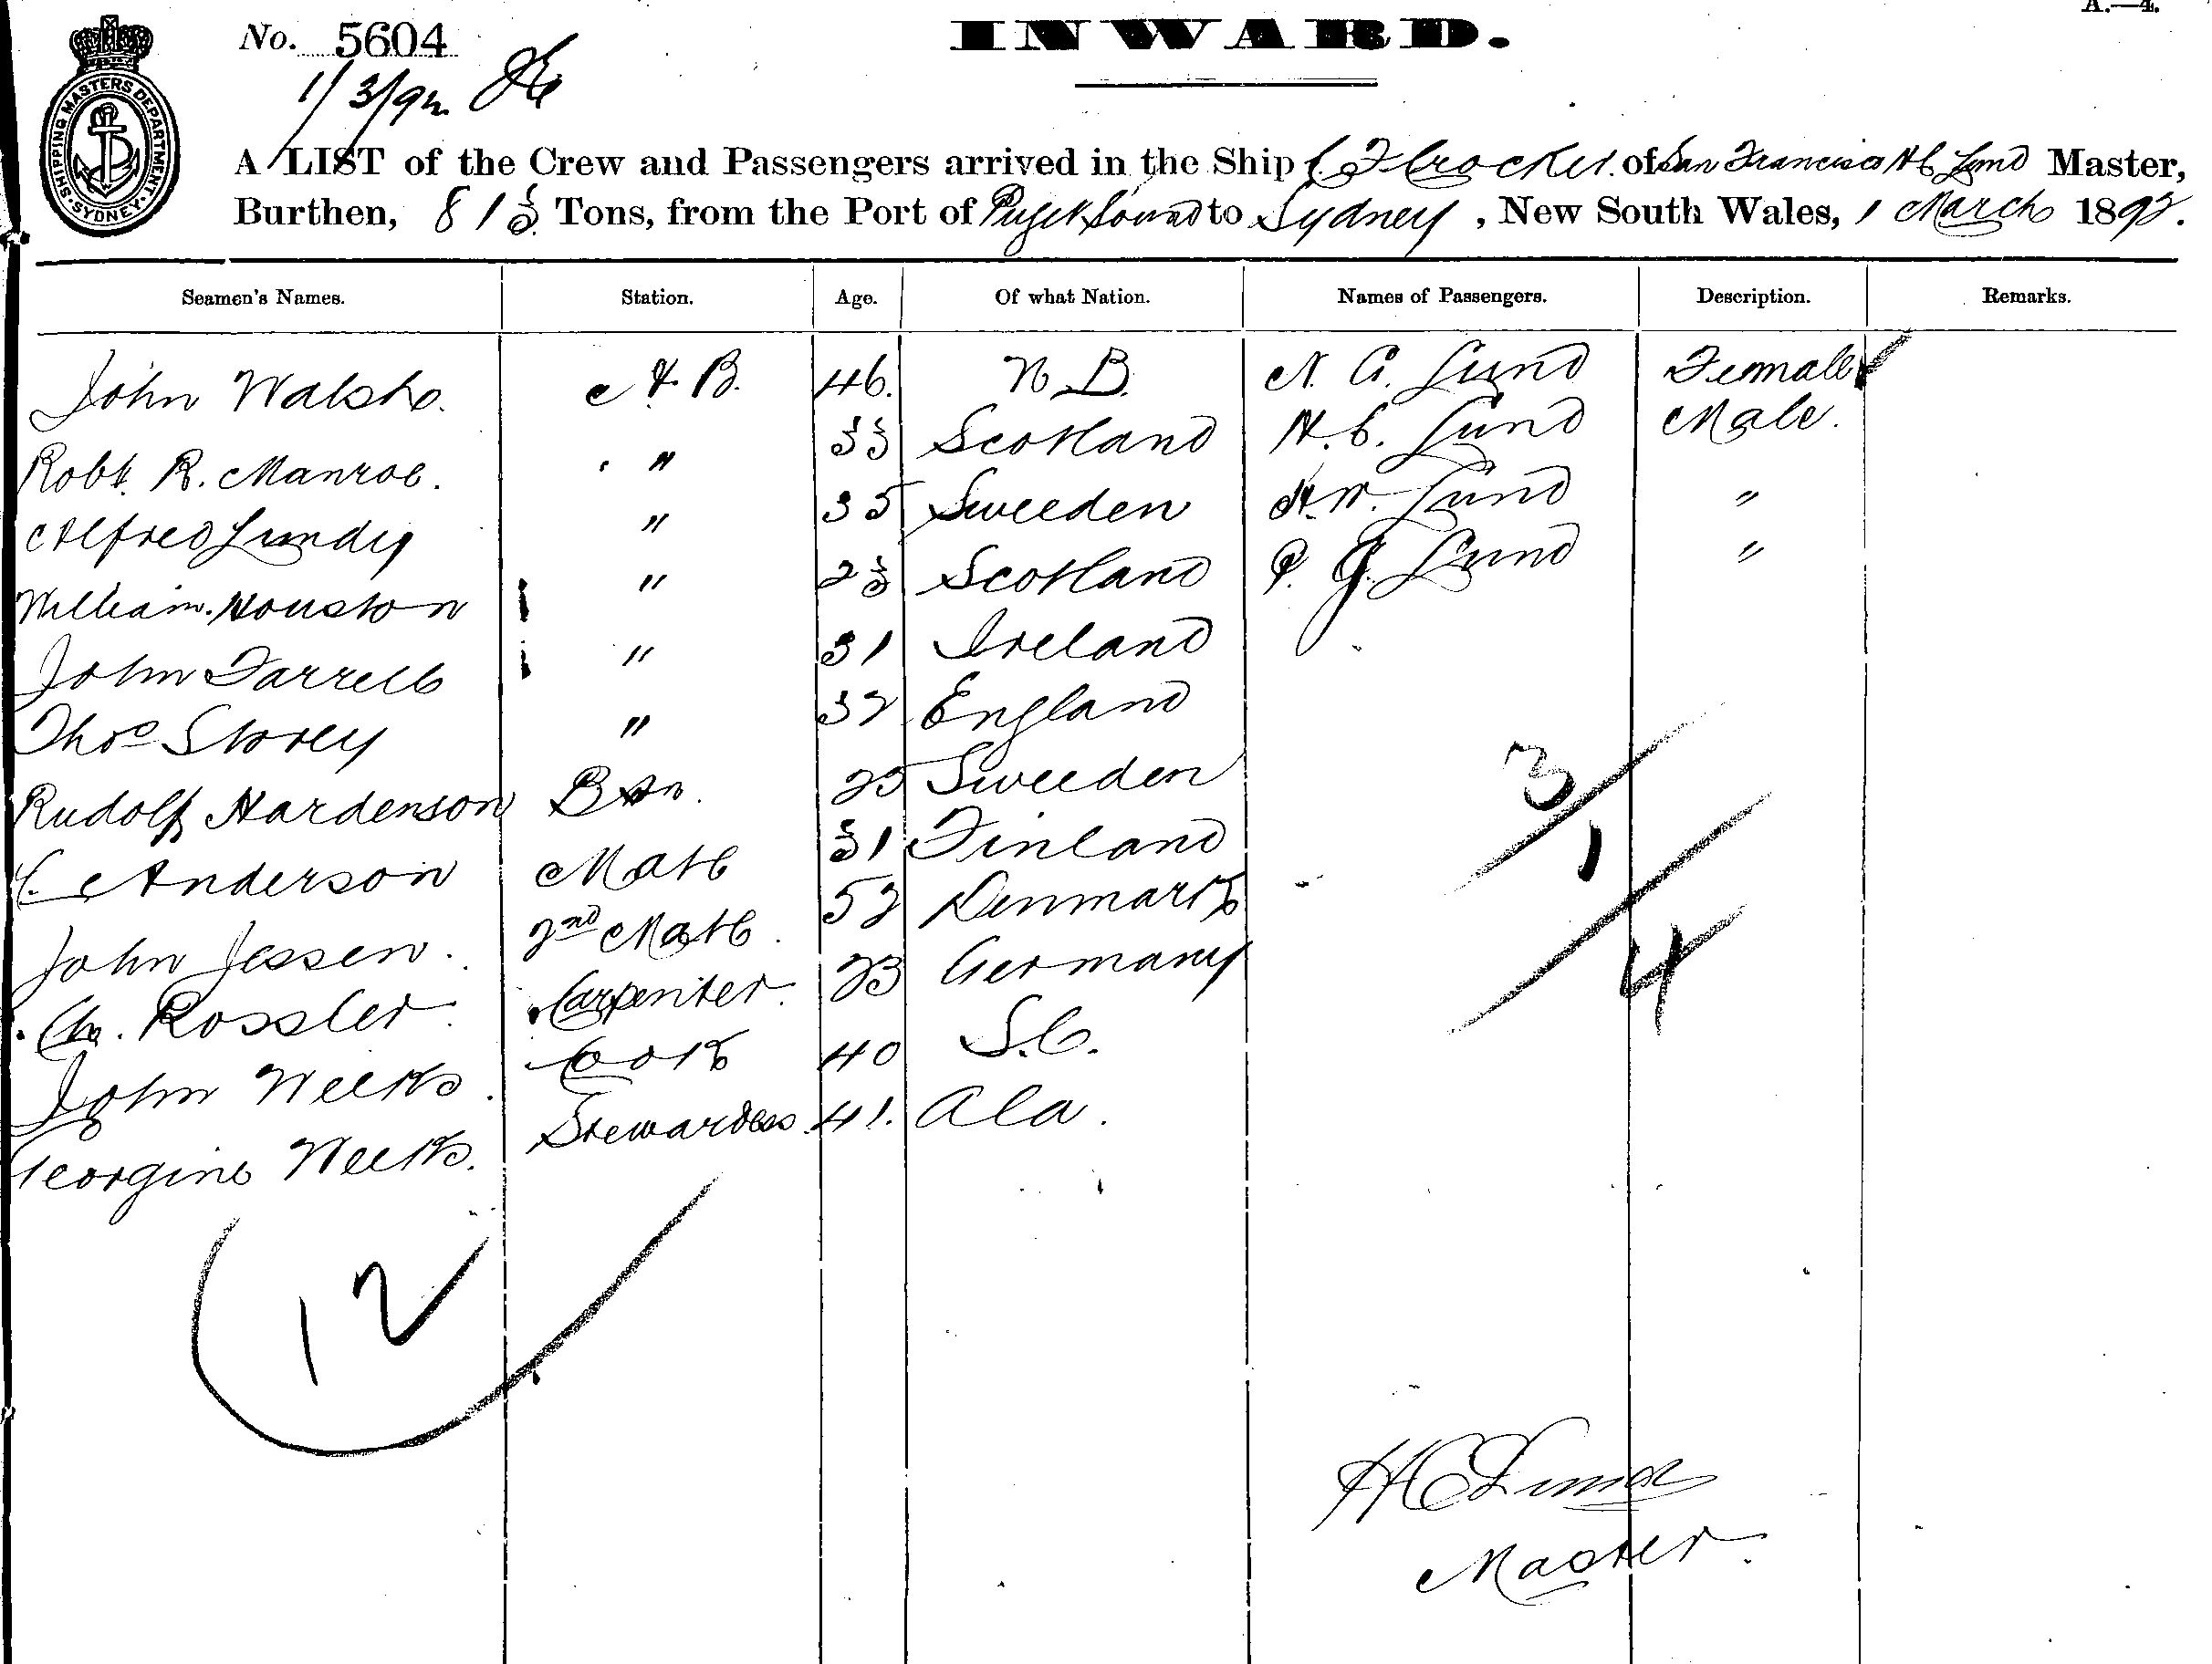 A.—4.
No. 5604
INWARD.
1/3/92
SHIPPING MASTERS DEPARTMENT · SYDNEY ·
A LIST of the Crew and Passengers arrived in the Ship C F Crocker. of San Francisco H C Lund Master,
Burthen, 813 Tons, from the Port of Puget Sound to Sydney, New South Wales, 1 March 1892.
Seamen's Names. Station. Age. Of what Nation. Names of Passengers. Description. Remarks.
John Walsh. A. B. 46. N B. N. C. Lund Female
Robt. R. Manroe. " 33 Scotland H. C. Lund Male.
Alfred Lundy " 35 Sweeden H. W. Lund "
William. Houston " 23 Scotland P. G. Lund "
John Farrell " 31 Ireland
Thos Storey " 32 England
Rudolf Hardenson Bsn. 25 Sweeden
C. Anderson Mate 31 Finland
John Jessen. 2nd Mate. 52 Denmark
Ch. Rossler. Carpenter. 23 Germany
John Weeks. Cook 40 S.C.
Georgine Weeks. Stewardess 41. Ala.
3/1/4
12
H C Lund
Master.